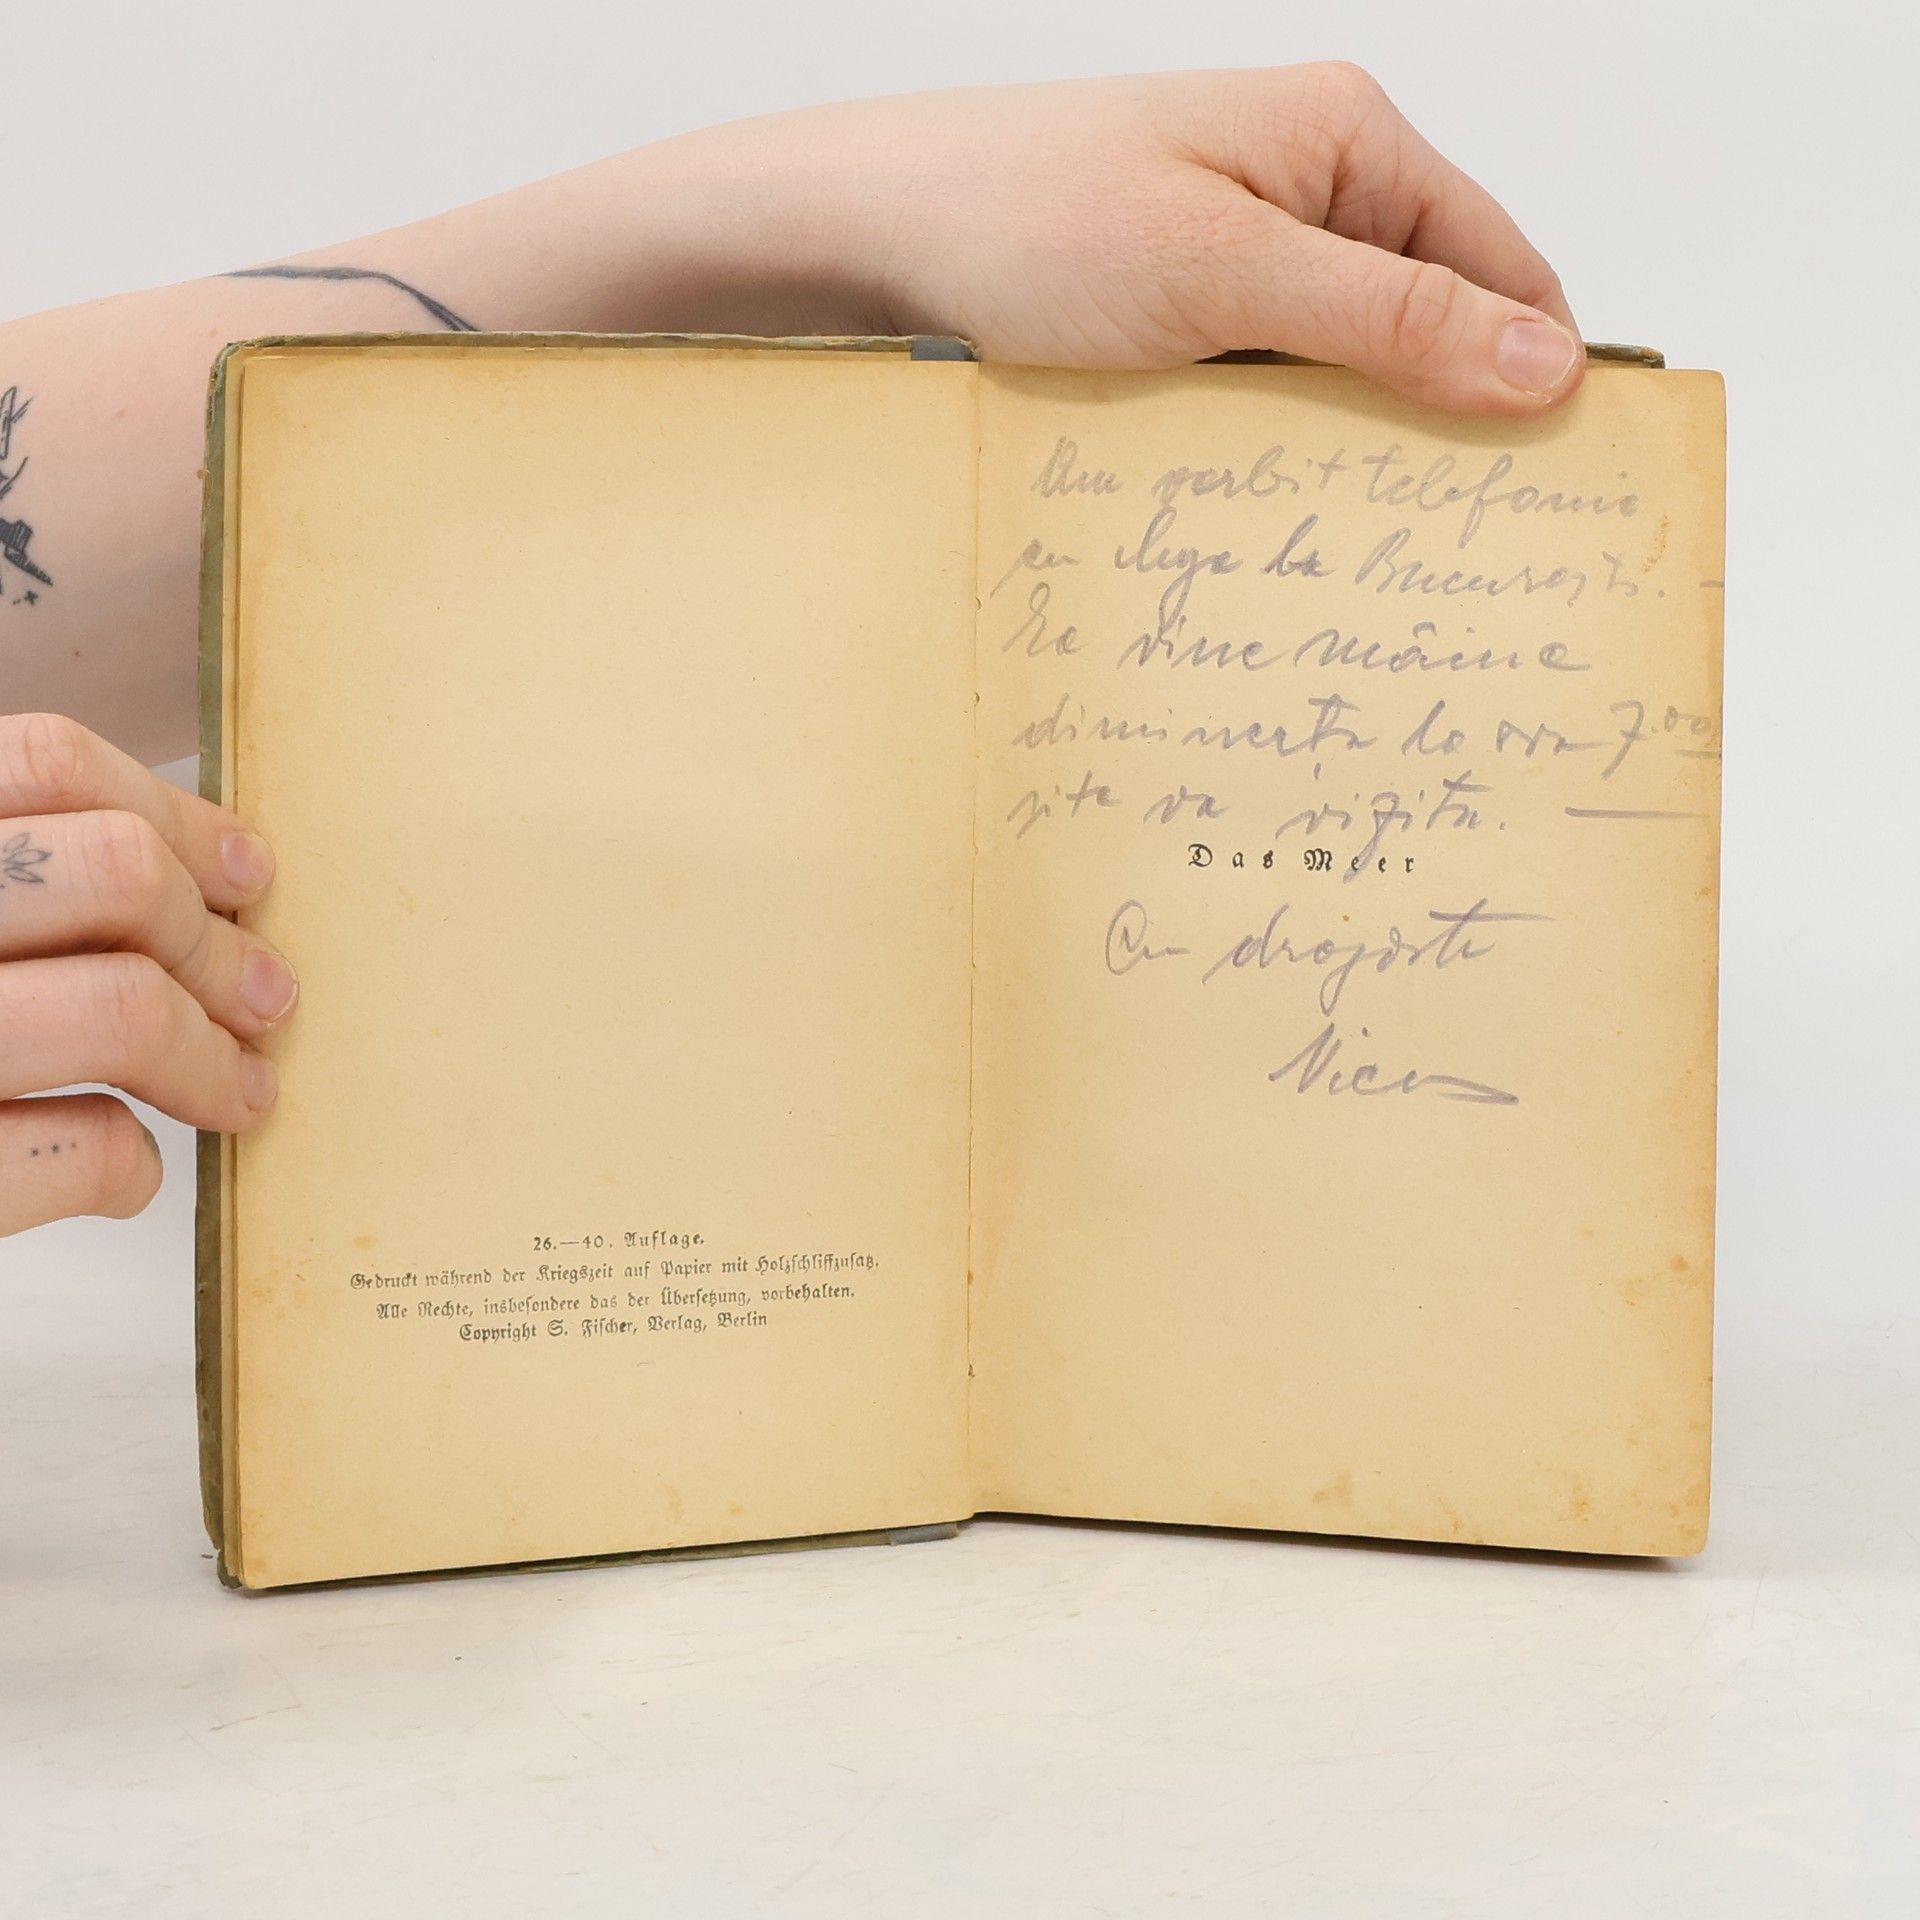 26.—40. Auflage.
Gedruckt während der Kriegszeit auf Papier mit Holzschliffzusatz.
Alle Rechte, insbesondere das der Übersetzung, vorbehalten.
Copyright S. Fischer, Verlag, Berlin
Am vorbit telefonic
cu la București. —
Ea vine mâine
dimineața la ora 7.00
va vizita. —
Das Meer
Cu dragoste
Nicu